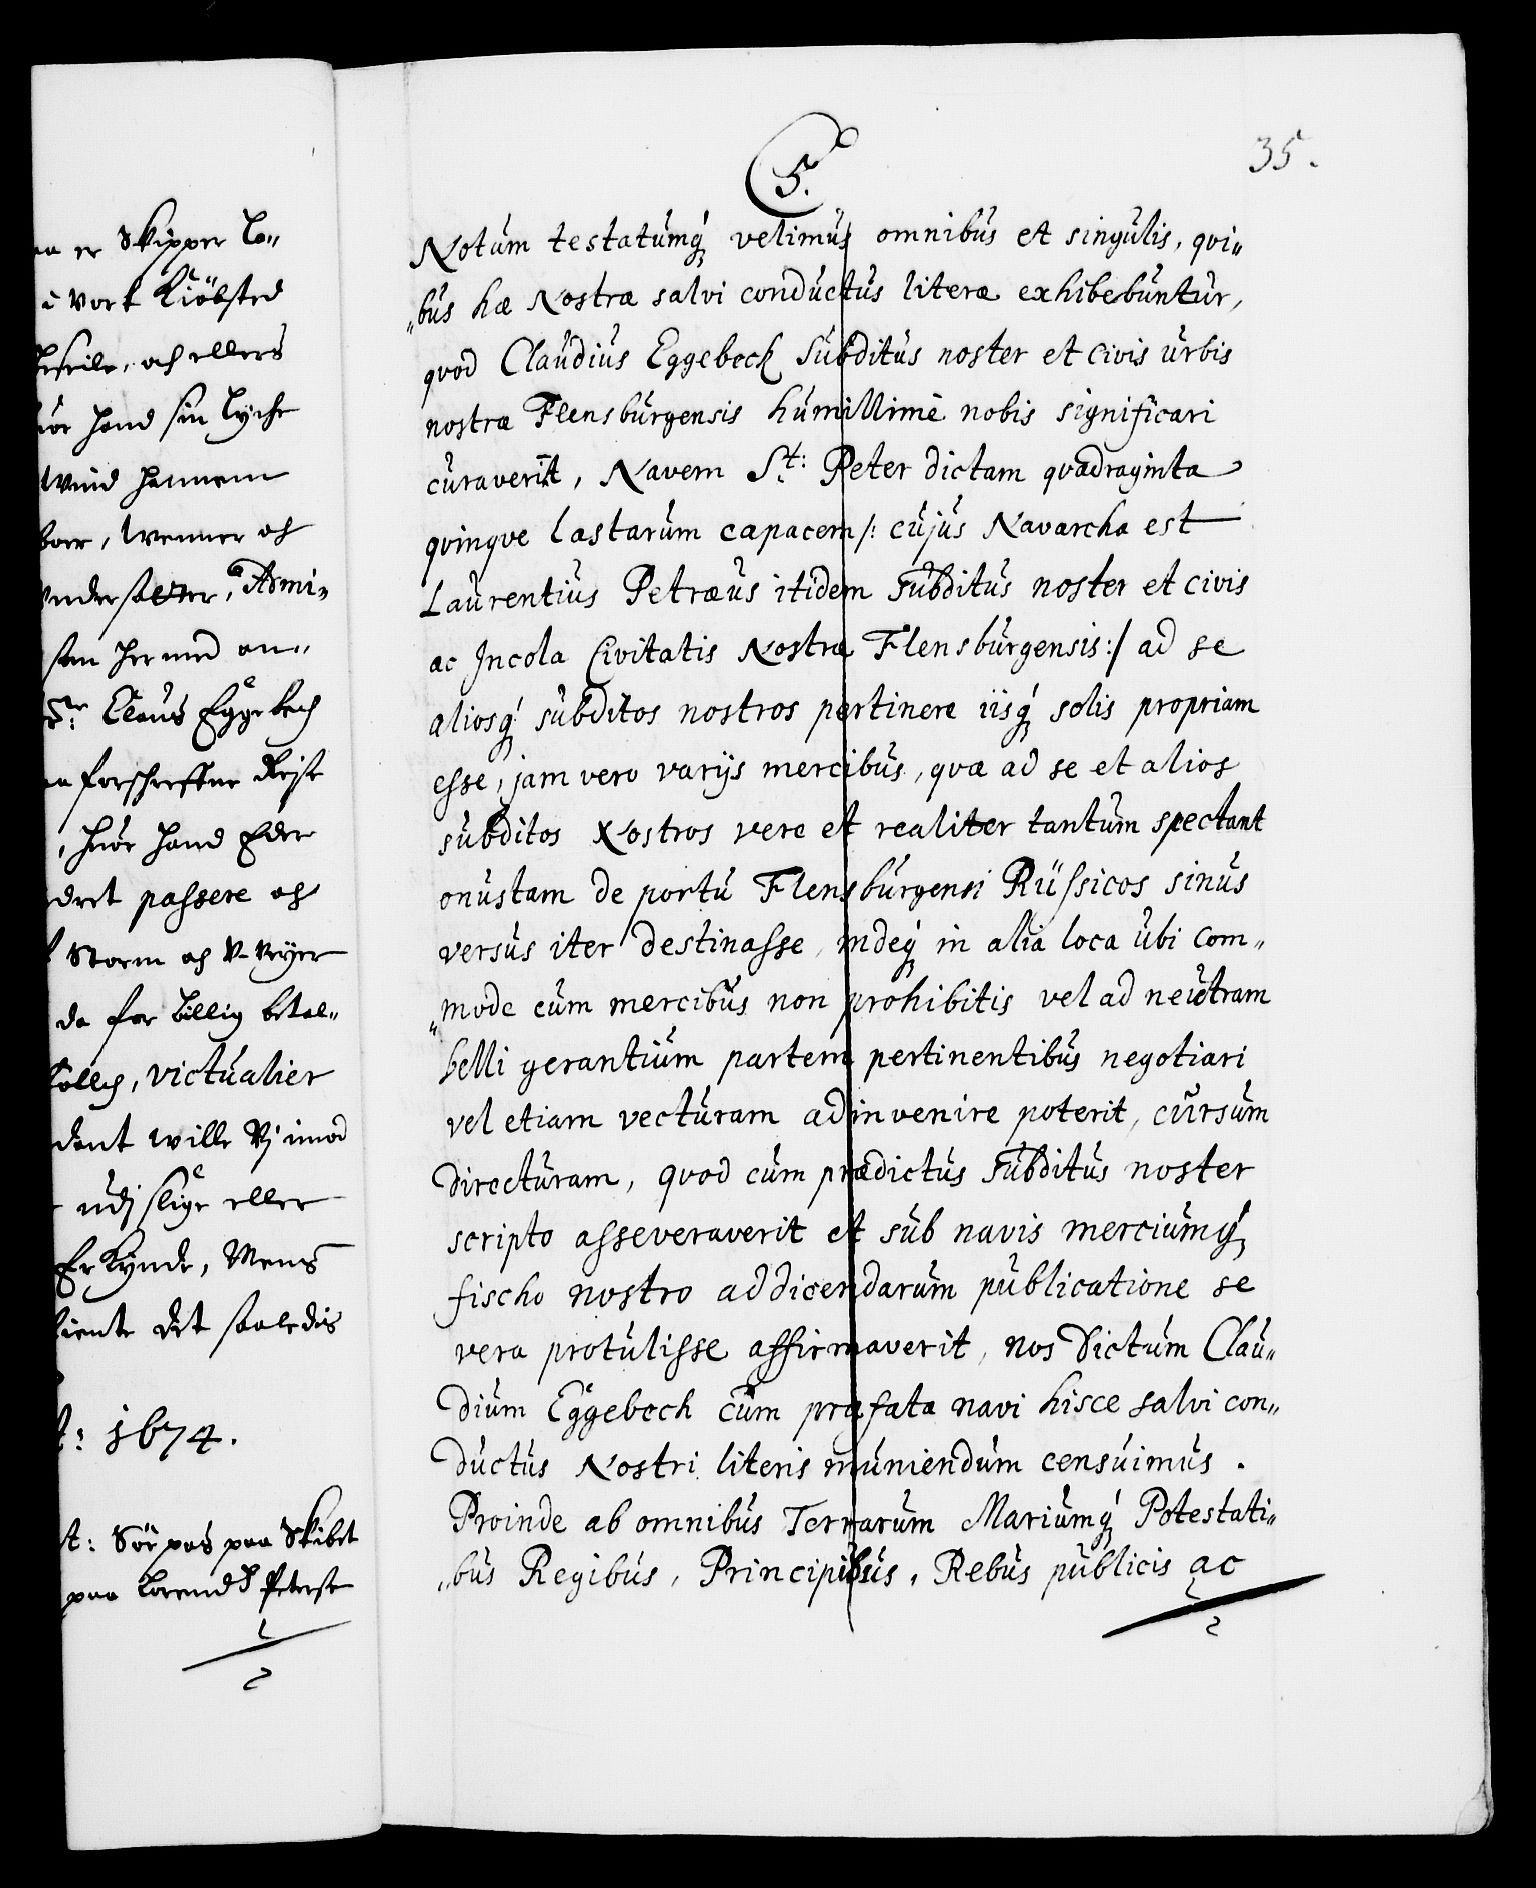 er Skipper Lo„
i Vort Kiöbsted
och ellers
hand sin
hannem
Wenner och
Undersatter, Armi„
som her med an„
Sr: Claus Eggebech
forschreffne Reise
, huor hand Eder
passere och
Storm och
da for billig betal„
victualier
wille Vj imod
udj slige eller
Mens
det saaledis
t: 1674.
t: Söe pas paa Skibet
paa Lorendtz Peterse
35.
5.
Notum testatumq́ velimus omnibus et singulis, qvi„
„bus hæ Nostræ salvi conductus literæ exhibebuntur,
qvod Claudius Eggebeck Subditus noster et civis urbis
nostræ Flensburgensis humillimè nobis significari
curaverit, Navem St: Peter dictam qvadraginta
qvinqve lastarum capacem /: cujus Navarcha est
Laurentius Petræus itidem Subditus noster et civis
ac Incola Civitatis Nostræ Flensburgensis :/ ad se
aliosq́ subditos nostros pertinere iisq́ solis propriam
esse, jam vero varijs mercibus, qvæ ad se et alios
subditos Nostros vere et realiter tantum spectant
onustam de portu Flensburgensi Russicos sinus
versus iter destinasse, indeq́ in alia loca ubi com„
„mode cum mercibus non prohibitis vel ad neutram
belli gerantium partem pertinentibus negotiari
vel etiam vecturam adinvenire poterit, cursum
directuram, qvod cum prædictus Subditus noster
scripto asseveraverit et sub navis merciumq́
fischo nostro addicendarum publicatione se
vera protulisse affirmaverit, nos Dictum Clau„
dium Eggebeck cum præfata navi hisce salvi con„
ductus Nostri literis muniendum censuimus.
Proinde ab omnibus Terrarum Mariumq́ Potestati„
„bus Regibus, Principibus, Rebus publicis ac